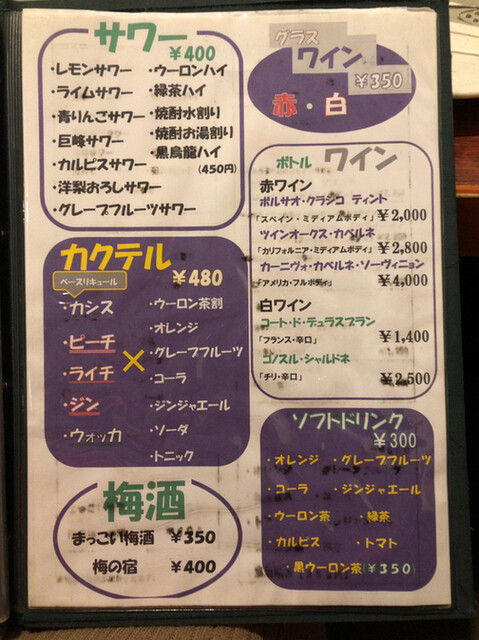 サワー
¥400
・レモンサワー
・ライムサワー
・青りんごサワー
・巨峰サワー
・カルピスサワー
・洋梨おろしサワー
・グレープフルーツサワー
・ウーロンハイ
・緑茶ハイ
・焼酎水割り
・焼酎お湯割り
・黒烏龍ハイ
(450円)
グラス
ワイン
¥350
赤・白
ボトル ワイン
赤ワイン
ボルサオ・クラシコ ティント
「スペイン・ミディアムボディ」 ¥2,000
ツインオークス・カベルネ
「カリフォルニア・ミディアムボディ」 ¥2,800
カーニヴォ・カベルネ・ソーヴィニョン
「アメリカ・フルボディ」 ¥4,000
白ワイン
コート・ド・デュラスブラン
「フランス・辛口」 ¥1,400
コンスル・シャルドネ
「チリ・辛口」 ¥2,500
カクテル
¥480
ベースリキュール
・カシス
・ピーチ
・ライチ
・ジン
・ウォッカ
×
・ウーロン茶割
・オレンジ
・グレープフルーツ
・コーラ
・ジンジャエール
・ソーダ
・トニック
梅酒
まっこい梅酒 ¥350
梅の宿 ¥400
ソフトドリンク
¥300
・オレンジ ・グレープフルーツ
・コーラ ・ジンジャエール
・ウーロン茶 ・緑茶
・カルピス ・トマト
・黒ウーロン茶(¥350)